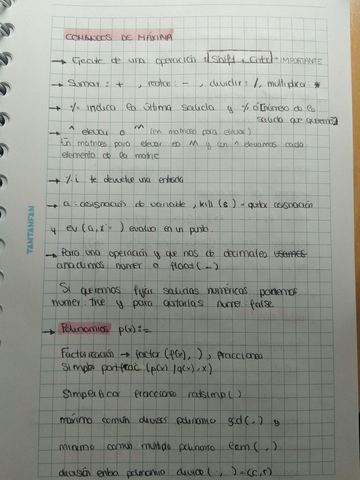 COMANDOS DE MÁXIMA
→ Ejecute de una operación: Shift + Enter → IMPORTANTE
→ Sumar: +, restar: -, dividir: /, multiplicar *
→ % indica la última salida y % o(número de la
salida que queremos)
→ ^ elevar o ^^ (en matrices para elevar)
En matrices para elevar es ^^ y con ^ elevamos cada
elemento de la matriz
→ %i te devuelve una entrada
→ a: asignación de variable, kill(a) = quitar asignación
y ev(a,x= ) evalua en un punto.
→ Para una operación y que nos de decimales usamos
añadimos numer o float(-)
Si queremos fijar salidas numéricas ponemos
numer: true y para quitarlas numer: false.
→ Polinomios p(x):=
Factorización → factor (p(x), ), fracciones
simples partfrac (p(x)/q(x), x)
Simplificar fracciones ratsimp( )
máximo común divisor polinomio gcd( , ) y
mínimo común multiplo polinomio lcm( , )
división entre polinomio divide( , ) = (c, r)
TANTANFAN